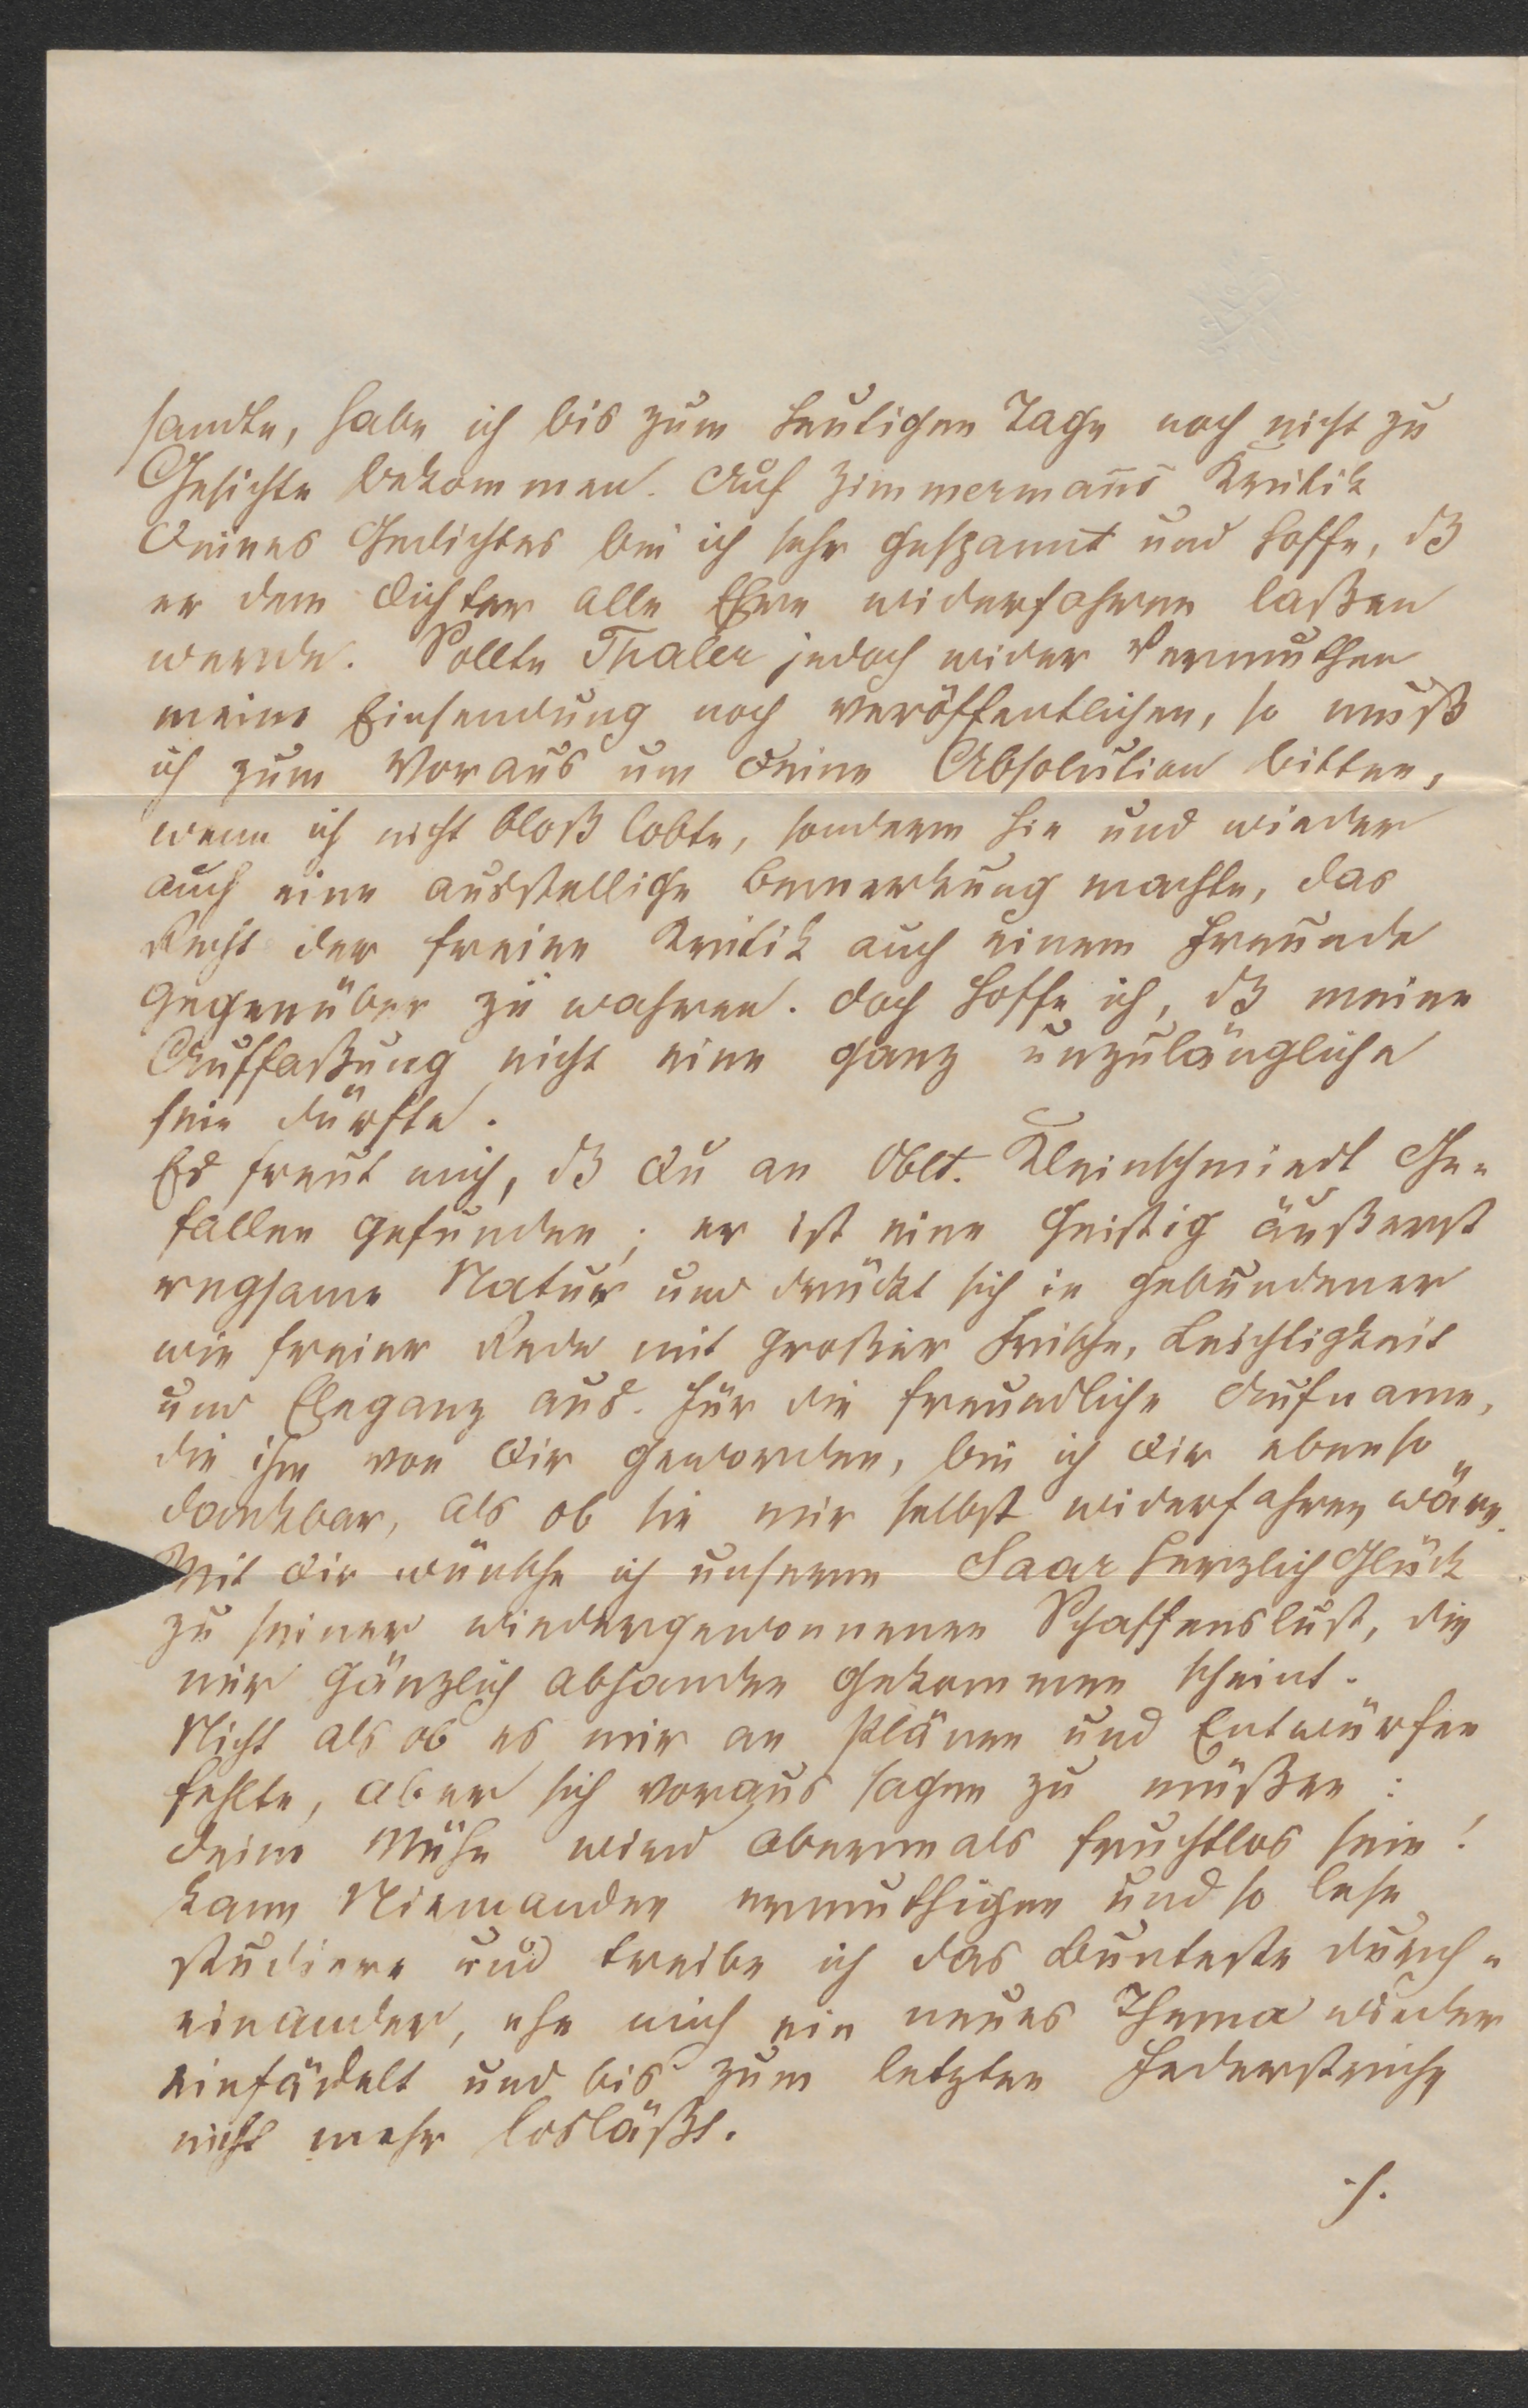 sandte, habe ich bis zum heutigen Tage noch nicht zu
Gesichte bekommen. Auf Zimmermanns Kritik
Deines Gedichtes bin ich sehr gespannt und hoffe, dß
er dem Dichter alle Ehre widerfahren laßen
werde. Sollte Thaler jedoch wider Vermuthen
meine Einsendung noch veröffentlichen, so muß
ich zum Voraus um Deine Absolution bitten,
wenn ich nicht bloß lobte, sondern hie und wieder
auch eine ausstellige Bemerkung machte, das
Recht der freien Kritik auch einem Freunde
gegenüber zu wahren. Doch hoffe ich, dß meine
Auffaßung nicht eine ganz unzulängliche
sein dürfte.
Es freut mich, dß Du an Oblt. Kleinschmiedt Ge-
fallen gefunden; er ist eine geistig äußerst
regsame Natur und drückt sich in gebundener
wie freier Rede mit großer Frische, Leichtigkeit
und Eleganz aus. Für die freundliche Aufname,
die ihm von Dir geworden, bin ich Dir ebenso
dankbar, als ob sie mir selbst widerfahren wäre.
Mit Dir wünsche ich unserem Saar herzlich Glück
zu seiner wiedergewonnenen Schaffenslust, die
mir gänzlich abhanden gekommen scheint.
Nicht als ob es mir an Plänen und Entwürfen
fehlte, aber sich voraus sagen zu müßen:
deine Mühe wird abermals fruchtlos sein!
kann Niemanden ermuthigen und so lese
studiere und treibe ich das Bunteste durch-
einander, ehe mich ein neues Thema wieder
einfädelt und bis zum letzten Federstriche
nicht mehr losläßt.